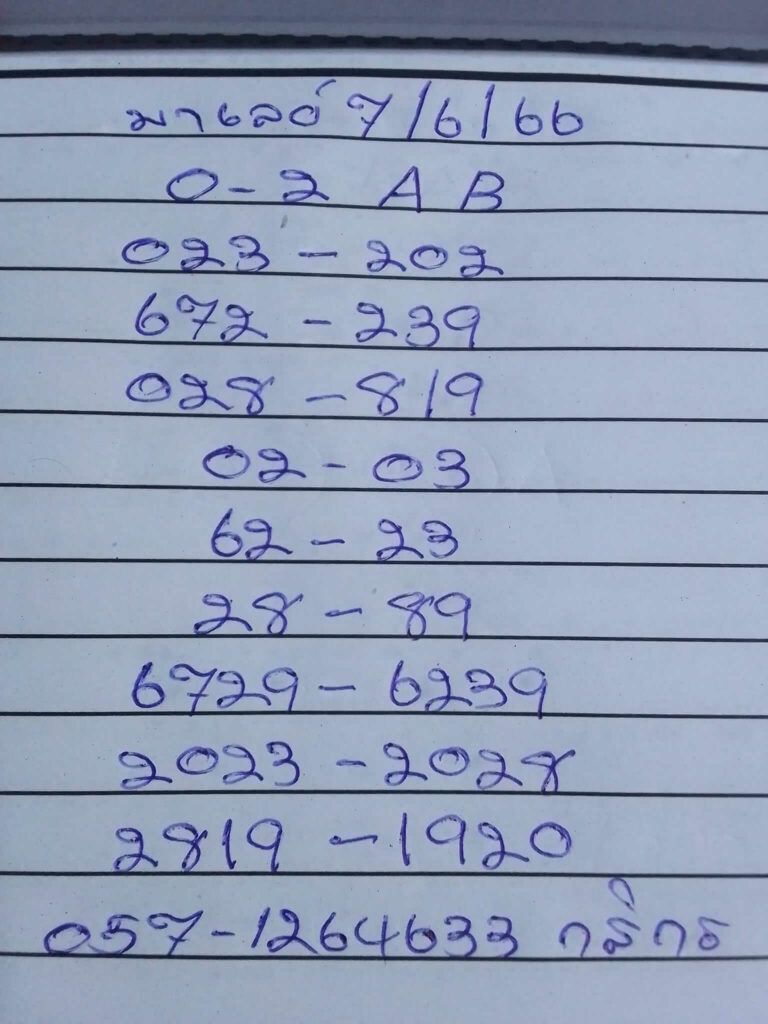 มาเลย์ 7/6/66
0-2 A B
023 - 202
672 - 239
028 - 819
02 - 03
62 - 23
28 - 89
6729 - 6239
2023 - 2028
2819 - 1920
057-1264633